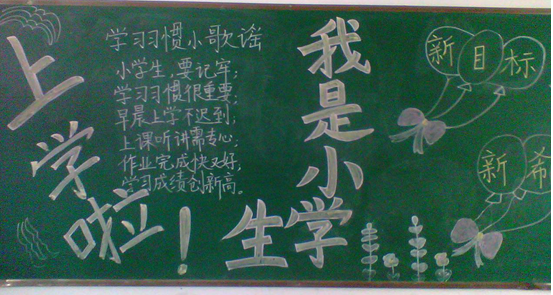 上学啦！
学习习惯小歌谣
小学生，要记牢；
学习习惯很重要；
早晨上学不迟到；
上课听讲需专心；
作业完成快又好；
学习成绩创新高。
我是小学生
新目标
新希